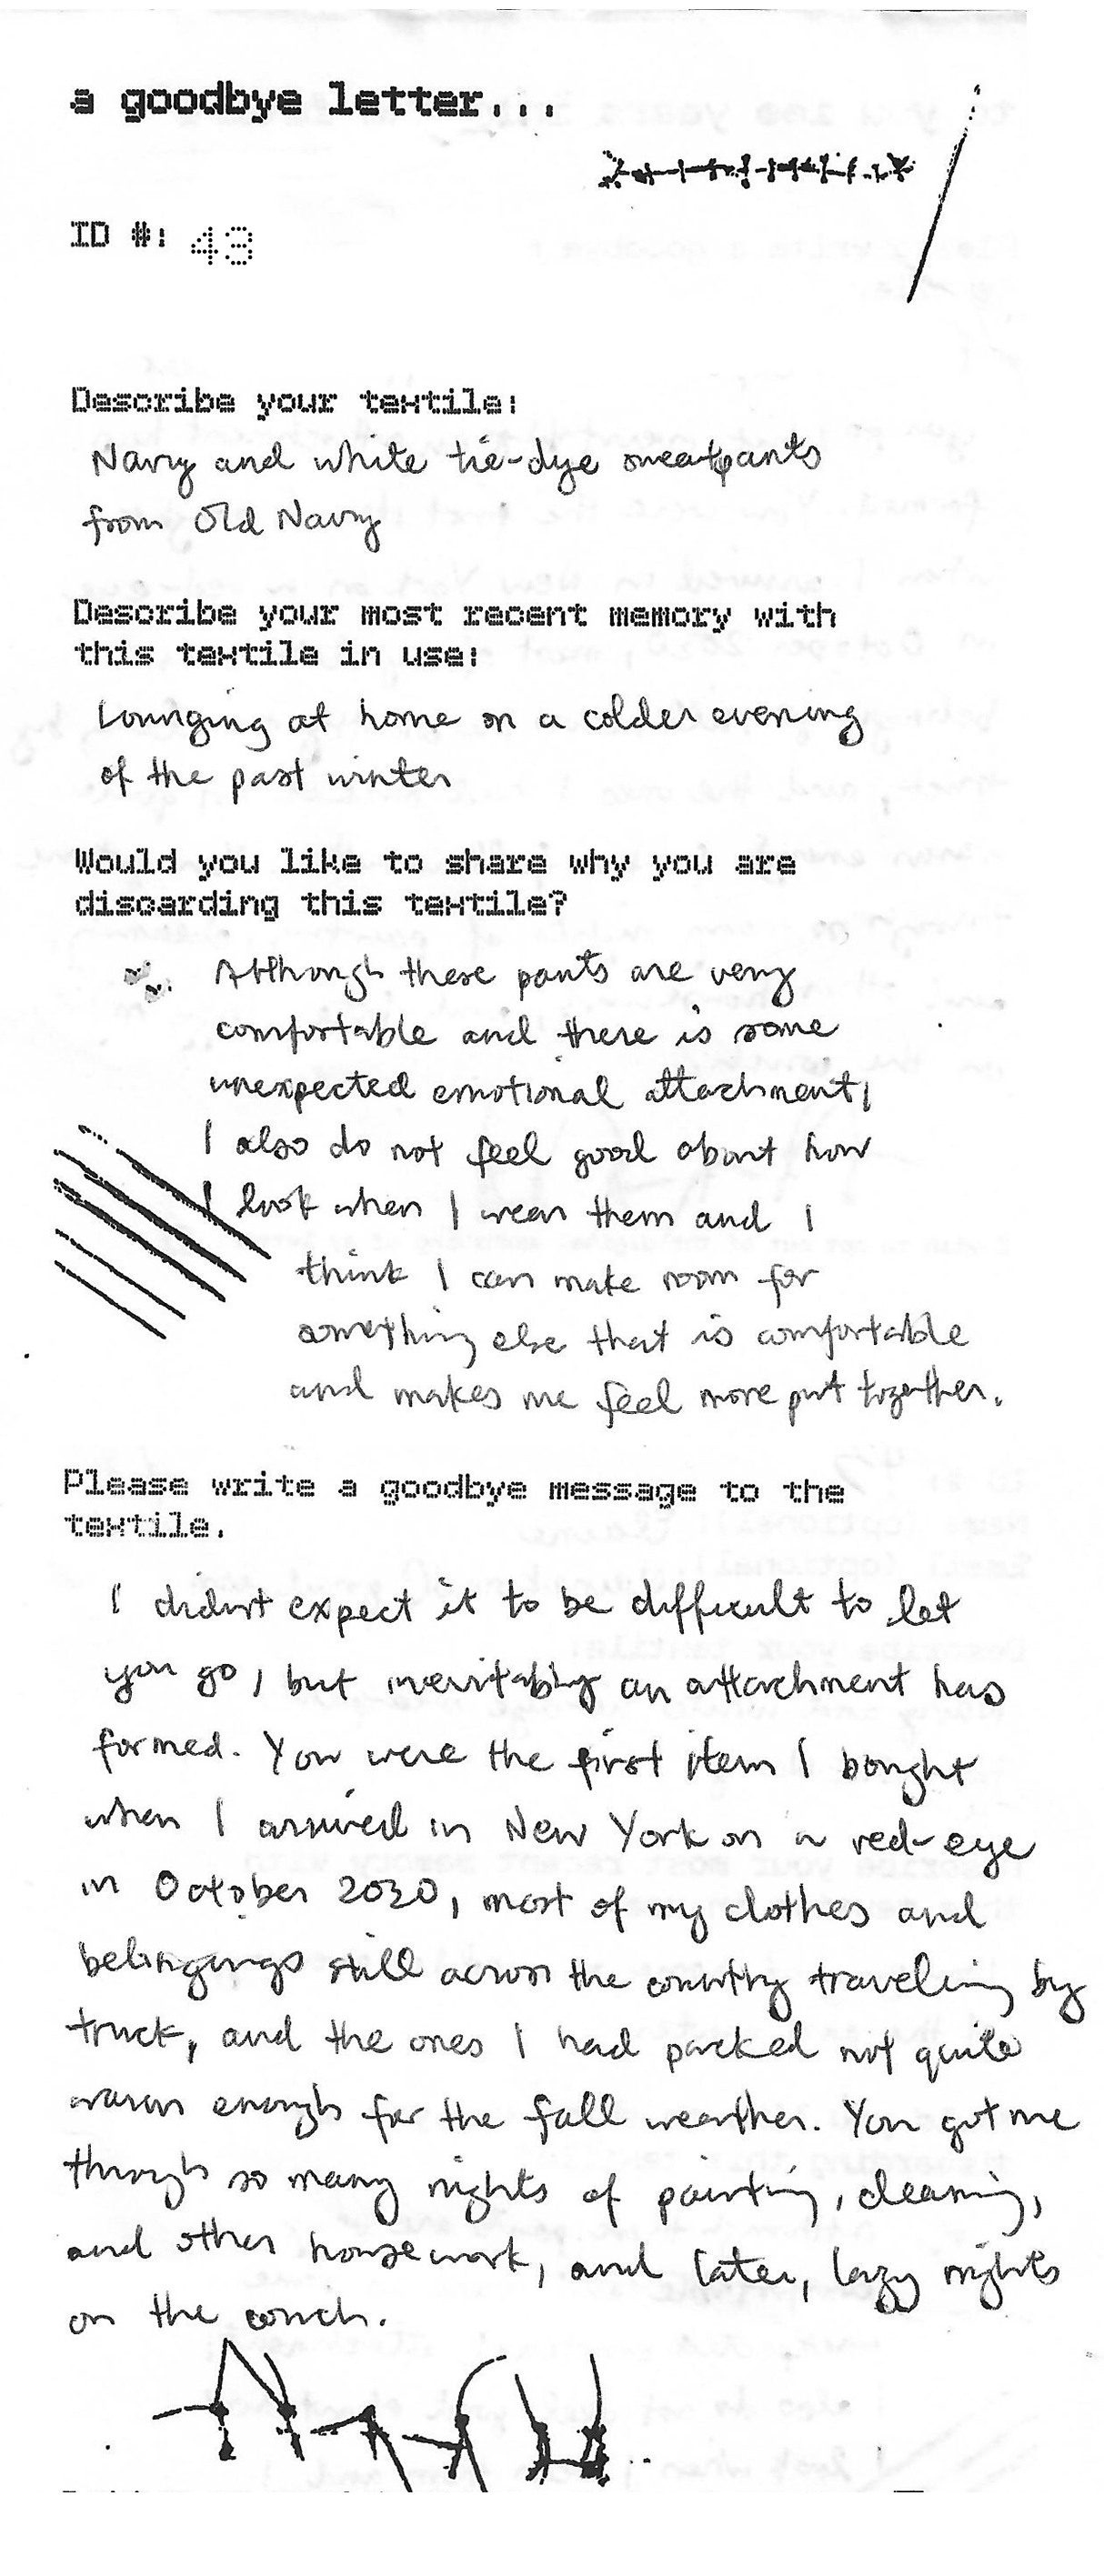 a goodbye letter...
ID #: 43
Describe your textile:
Navy and white tie-dye sweatpants
from Old Navy
Describe your most recent memory with
this textile in use:
Lounging at home on a colder evening
of the past winter
Would you like to share why you are
discarding this textile?
Although these pants are very
comfortable and there is some
unexpected emotional attachment,
I also do not feel good about how
I look when I wear them and I
think I can make room for
something else that is comfortable
and makes me feel more put together.
Please write a goodbye message to the
textile.
I didn't expect it to be difficult to let
you go, but inevitably an attachment has
formed. You were the first item I bought
when I arrived in New York on a red-eye
in October 2020, most of my clothes and
belongings still across the country traveling by
truck, and the ones I had packed not quite
warm enough for the fall weather. You got me
through so many nights of painting, cleaning,
and other housework, and later, lazy nights
on the couch.